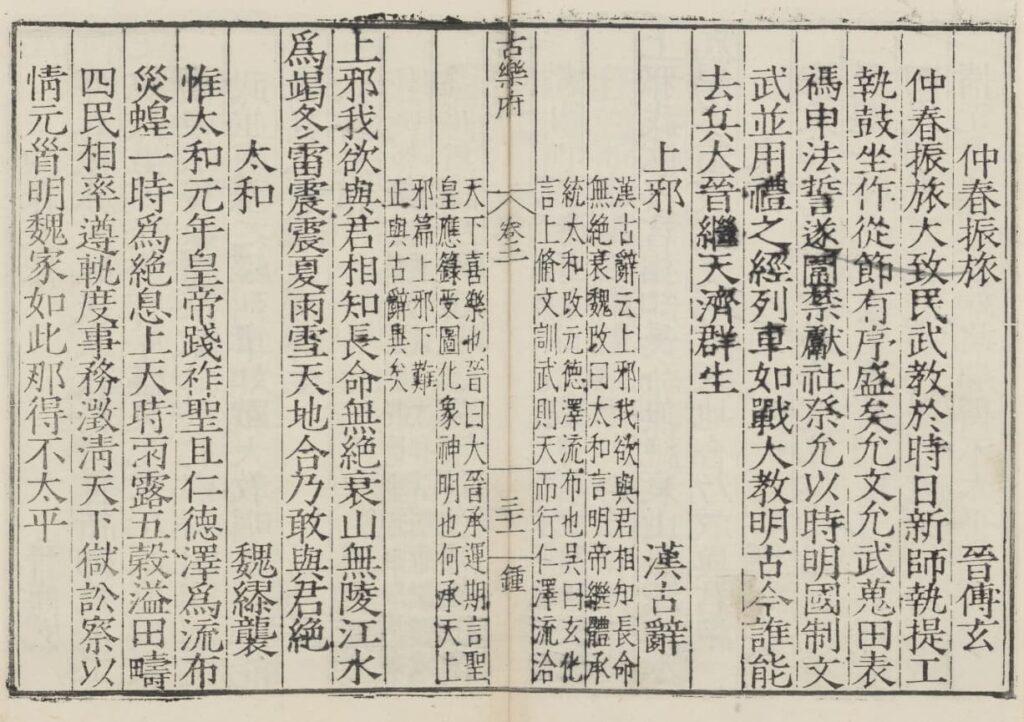 仲春振旅 晉傅玄
仲春振旅大致民武教於時日新師執提工
執鼓坐作從節有序盛矣允文允武蒐田表
禡申法誓遂圍禁獻社祭允以時明國制文
武並用禮之經列車如戰大教明古今誰能
去兵大晉繼天濟群生
上邪 漢古辭
漢古辭云上邪我欲與君相知長命
無絶衰魏改曰太和言明帝繼體承
統太和改元德澤流布也吳曰玄化
言上脩文訓武則天而行仁澤流洽
古樂府 卷二 三十一 鍾
天下喜樂也晉曰大晉承運期言聖
皇應籙受圖化象神明也何承天上
邪篇上邪下難
正與古辭異矣
上邪我欲與君相知長命無絶衰山無陵江水
爲竭冬雷震震夏雨雪天地合乃敢與君絶
太和 魏繆襲
惟太和元年皇帝踐祚聖且仁德澤爲流布
災蝗一時爲絶息上天時雨露五穀溢田疇
四民相率遵軌度事務澂清天下獄訟察以
情元首明魏家如此那得不太平